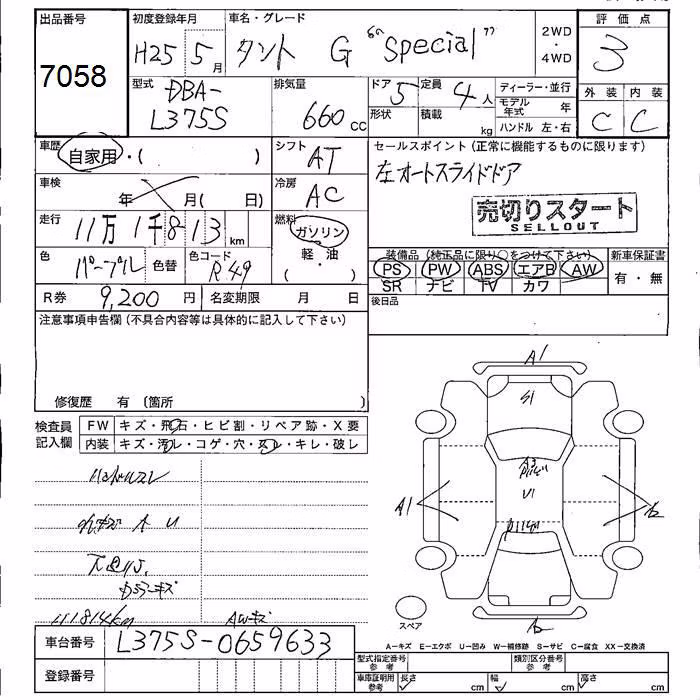 出品番号
7058
初度登録年月
H25 5月
車名・グレード
タント G "Special"
2WD
・
4WD
評価点
3
型式
DBA-
L375S
排気量
660cc
ドア
5
形状
定員
4人
積載
kg
ディーラー・並行
モデル年式 年
ハンドル 左・右
外装 内装
C C
車歴
自家用・( )
シフト
AT
セールスポイント(正常に機能するものに限ります)
左オートスライドドア
売切りスタート
SELLOUT
車検
年 月( 日)
冷房
AC
走行
11万1千813km
燃料
ガソリン
軽・油
( )
色
パープル
色替
色コード
R49
装備品(純正品に限り○をつけて下さい)
PS PW ABS エアB AW
SR ナビ TV カワ
新車保証書
有・無
R券 9,200円
名変期限 月 日
後日品
注意事項申告欄(不具合内容等は具体的に記入して下さい)
修復歴 有(箇所 )
検査員
記入欄
FW キズ・飛石・ヒビ割・リペア跡・X要
内装 キズ・汚レ・コゲ・穴・スレ・キレ・破レ
ハンドルスレ
111814km
AWキズ
A1
S1
U1
A1
スペア
A-キズ E-エクボ U-凹み W-補修跡 S-サビ C-腐食 XX-交換済
車台番号 L375S-0659633
登録番号
型式指定番号
参考
類別区分番号
参考
車庫証明用
参考
長さ cm
幅 cm
高さ cm